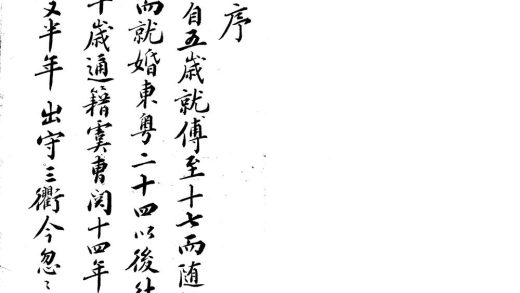 序
自五歲就傅至十七而随
而就婚東粤二十四以後
十歲通籍虞曹閱十四年
又半年出守三衢今忽〻